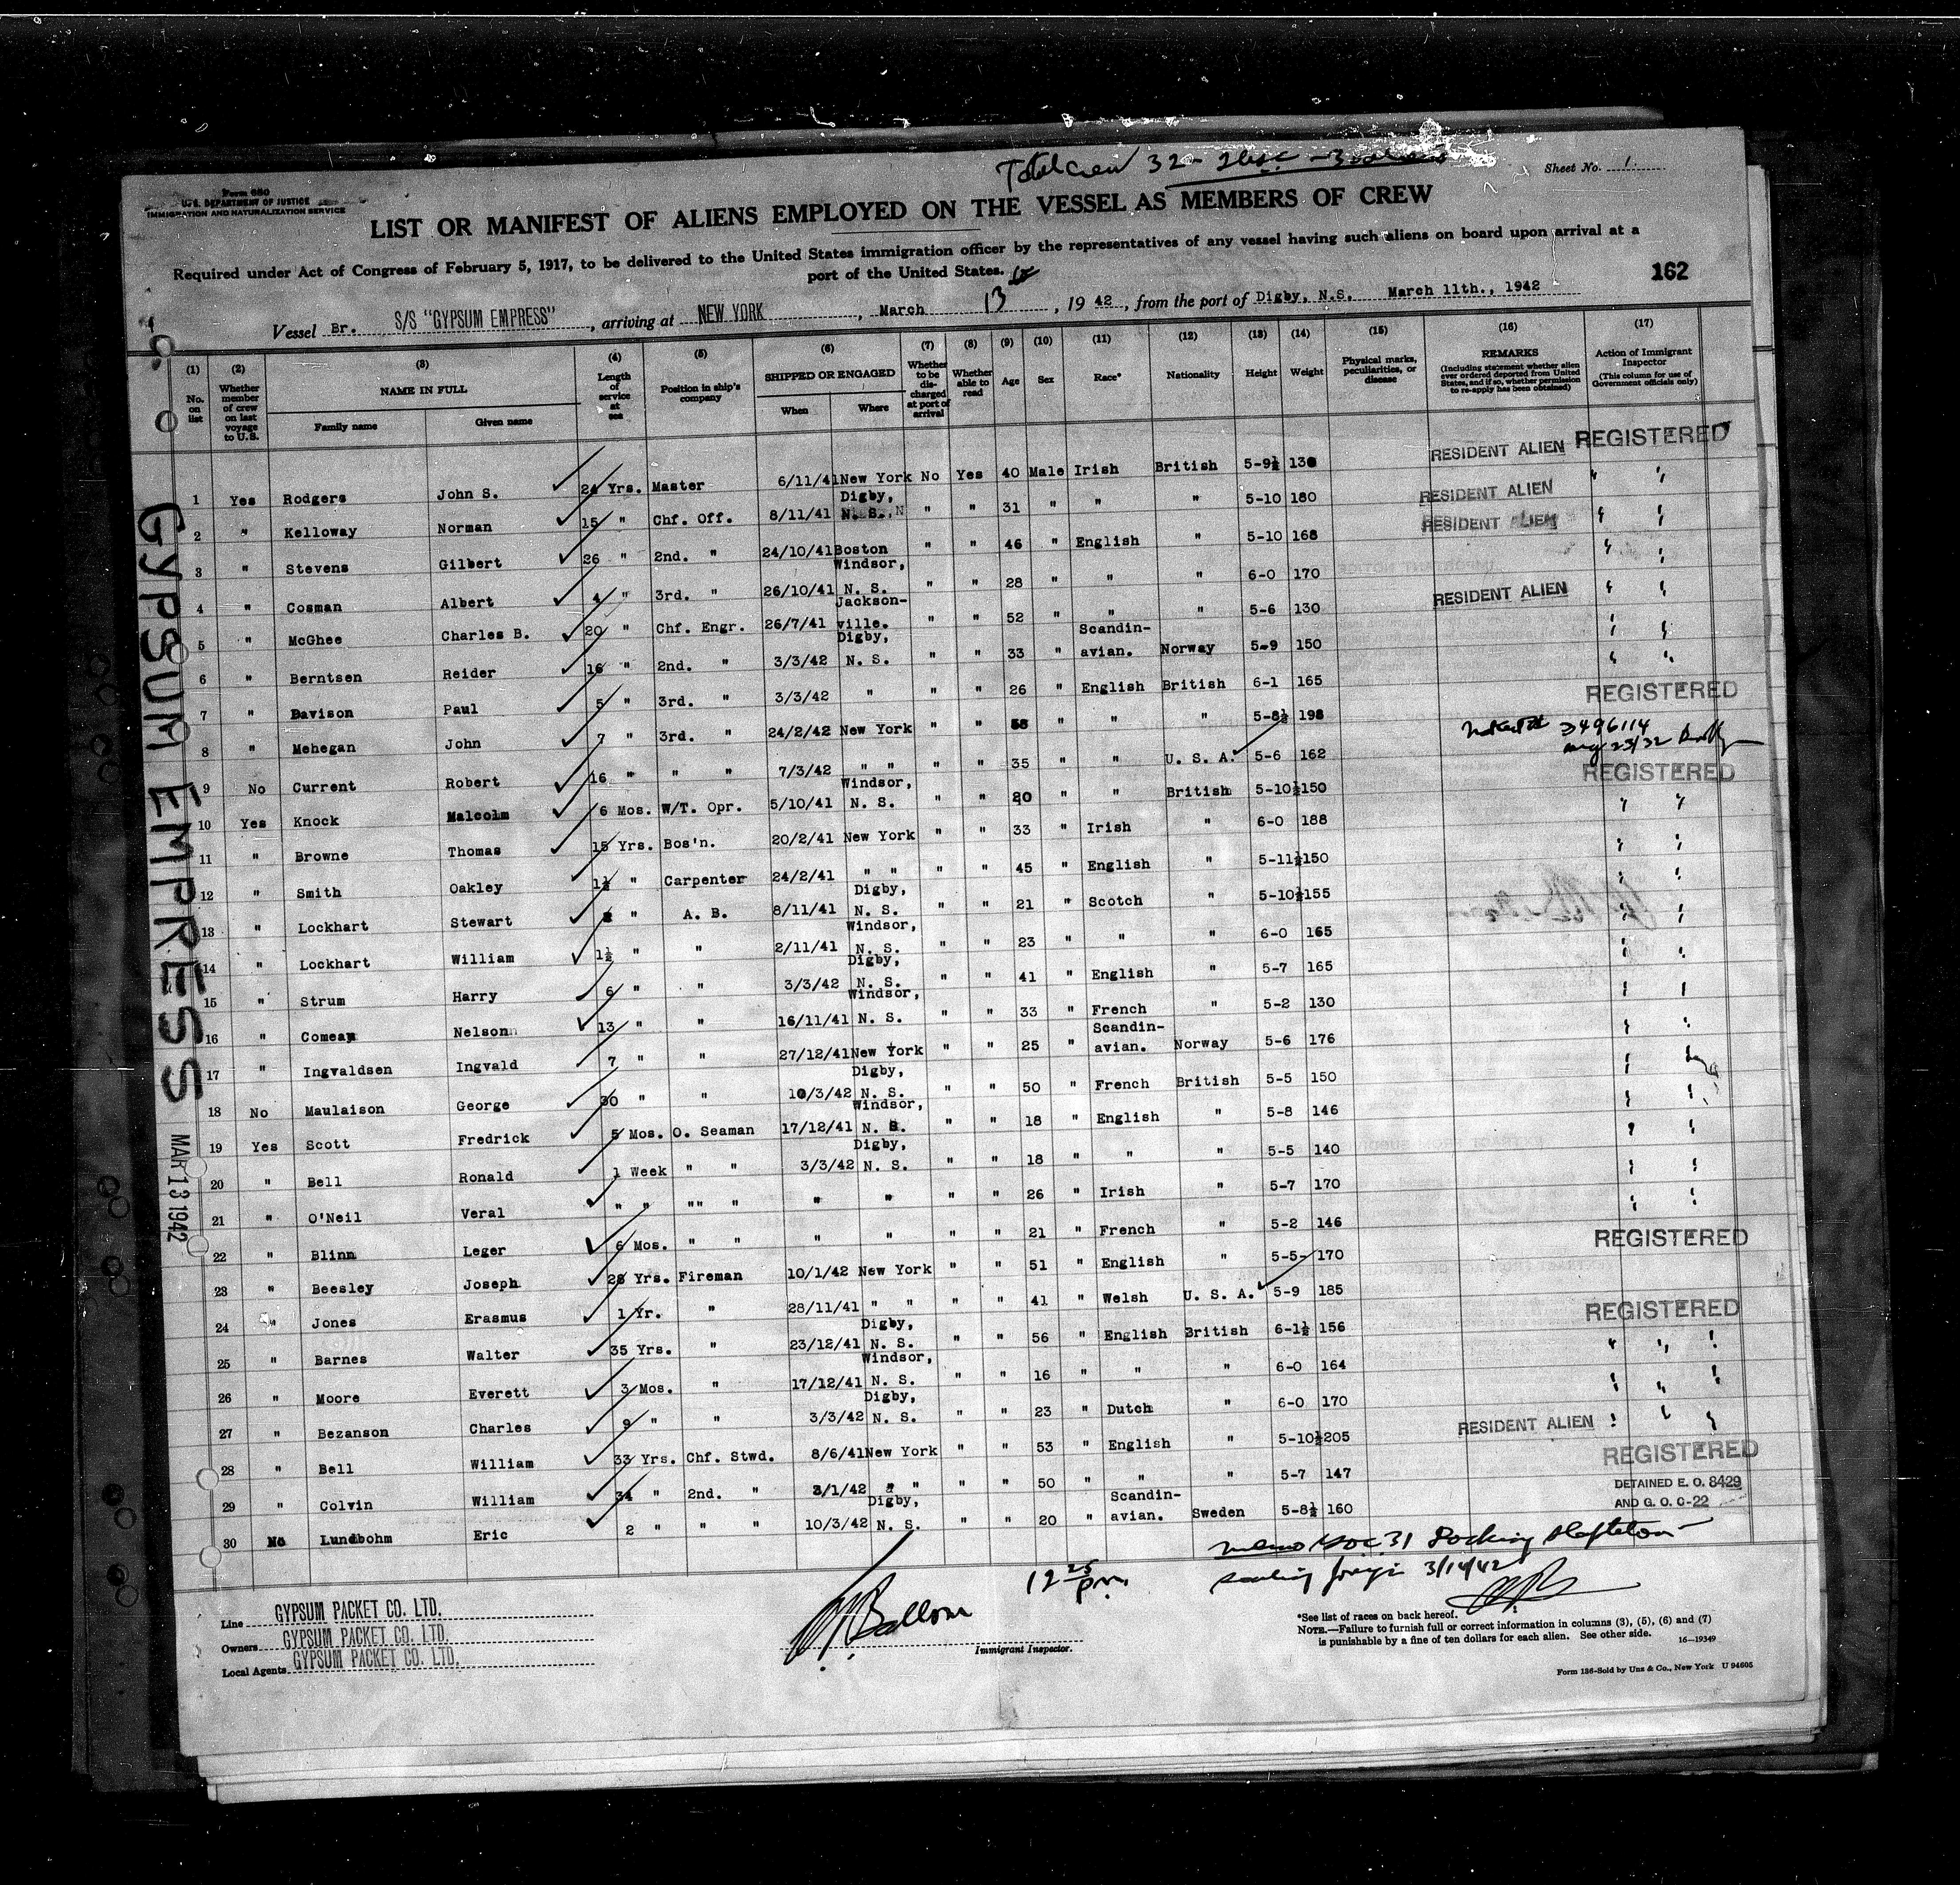 Total Crew 32 - 2 usc - 3
Sheet No. 1.
Form 680
U. S. DEPARTMENT OF JUSTICE
IMMIGRATION AND NATURALIZATION SERVICE
LIST OR MANIFEST OF ALIENS EMPLOYED ON THE VESSEL AS MEMBERS OF CREW
Required under Act of Congress of February 5, 1917, to be delivered to the United States immigration officer by the representatives of any vessel having such aliens on board upon arrival at a
port of the United States.
162
Vessel Br. S/S "GYPSUM EMPRESS", arriving at NEW YORK, March 13, 19 42, from the port of Digby, N.S. March 11th., 1942
(1) (2) (3) (4) (5) (6) (7) (8) (9) (10) (11) (12) (13) (14) (15) (16) (17)
No. on list
Whether member of crew on last voyage to U.S.
NAME IN FULL
Family name Given name
Length of service at sea
Position in ship's company
SHIPPED OR ENGAGED
When Where
Whether to be discharged at port of arrival
Whether able to read
Age
Sex
Race*
Nationality
Height
Weight
Physical marks, peculiarities, or disease
REMARKS
(Including statement whether alien ever ordered deported from United States, and if so, whether permission to re-apply has been obtained)
Action of Immigrant Inspector
(This column for use of Government officials only)
1 Yes Rodgers John S. 24 Yrs. Master 6/11/41 New York No Yes 40 Male Irish British 5-9½ 130 RESIDENT ALIEN REGISTERED
2 " Kelloway Norman 15 " Chf. Off. 8/11/41 Digby, N. S. " " 31 " " " 5-10 180 RESIDENT ALIEN " "
3 " Stevens Gilbert 26 " 2nd. " 24/10/41 Boston " " 46 " English " 5-10 168 RESIDENT ALIEN " "
4 " Cosman Albert 4 " 3rd. " 26/10/41 Windsor, N. S. " " 28 " " " 6-0 170 " "
5 " McGhee Charles B. 20 " Chf. Engr. 26/7/41 Jackson-ville. " " 52 " " " 5-6 130 RESIDENT ALIEN " "
6 " Berntsen Reider 16 " 2nd. " 3/3/42 Digby, N. S. " " 33 " Scandin-avian. Norway 5-9 150 " "
7 " Davison Paul 5 " 3rd. " 3/3/42 " " " 26 " English British 6-1 165 " "
8 " Mehegan John 7 " 3rd. " 24/2/42 New York " " 58 " " " 5-8½ 198 REGISTERED
9 No Current Robert 16 " " " 7/3/42 " " " " 35 " " U. S. A. 5-6 162 3496114
10 Yes Knock Malcolm 6 Mos. W/T. Opr. 5/10/41 Windsor, N. S. " " 20 " " British 5-10½ 150 REGISTERED
11 " Browne Thomas 15 Yrs. Bos'n. 20/2/41 New York " " 33 " Irish " 6-0 188 " "
12 " Smith Oakley 1½ " Carpenter 24/2/41 " " " " 45 " English " 5-11½ 150 " "
13 " Lockhart Stewart " A. B. 8/11/41 Digby, N. S. " " 21 " Scotch " 5-10½ 155 " "
14 " Lockhart William 1½ " " 2/11/41 Windsor, N. S. " " 23 " " " 6-0 165 " "
15 " Strum Harry 6 " " 3/3/42 Digby, N. S. " " 41 " English " 5-7 165 " "
16 " Comeau Nelson 13 " " 16/11/41 Windsor, N. S. " " 33 " French " 5-2 130 " "
17 " Ingvaldsen Ingvald 7 " " 27/12/41 New York " " 25 " Scandin-avian. Norway 5-6 176 " "
18 No Maulaison George 30 " " 10/3/42 Digby, N. S. " " 50 " French British 5-5 150 " "
19 Yes Scott Fredrick 5 Mos. O. Seaman 17/12/41 Windsor, N. S. " " 18 " English " 5-8 146 " "
20 " Bell Ronald 1 Week " " 3/3/42 Digby, N. S. " " 18 " " " 5-5 140 " "
21 " O'Neil Veral " " "" " " " " " 26 " Irish " 5-7 170 " "
22 " Blinn Leger 6 Mos. " " " " " " 21 " French " 5-2 146 " "
23 " Beesley Joseph 28 Yrs. Fireman 10/1/42 New York " " 51 " English " 5-5 170 REGISTERED
24 " Jones Erasmus 1 Yr. " 28/11/41 " " " " 41 " Welsh U. S. A. 5-9 185
25 " Barnes Walter 35 Yrs. " 23/12/41 Digby, N. S. " " 56 " English British 6-1½ 156 REGISTERED
26 " Moore Everett 3 Mos. " 17/12/41 Windsor, N. S. " " 16 " " " 6-0 164 " " "
27 " Bezanson Charles 9 " " 3/3/42 Digby, N. S. " " 23 " Dutch " 6-0 170 " " "
28 " Bell William 33 Yrs. Chf. Stwd. 8/6/41 New York " " 53 " English " 5-10½ 205 RESIDENT ALIEN " " "
29 " Colvin William 34 " 2nd. " 3/1/42 " " " " 50 " " " 5-7 147 REGISTERED
30 No Lundbohm Eric 2 " " " 10/3/42 Digby, N. S. " " 20 " Scandin-avian. Sweden 5-8½ 160 DETAINED E. O. 8429 AND G. O. C-22
GYPSUM EMPRESS
MAR 13 1942
12 25 pm.
3/14/42
Line GYPSUM PACKET CO. LTD.
Owners GYPSUM PACKET CO. LTD.
Local Agents GYPSUM PACKET CO. LTD.
Immigrant Inspector.
*See list of races on back hereof.
NOTE.—Failure to furnish full or correct information in columns (3), (5), (6) and (7)
is punishable by a fine of ten dollars for each alien. See other side.
16—19349
Form 136-Sold by Unz & Co., New York U 94605